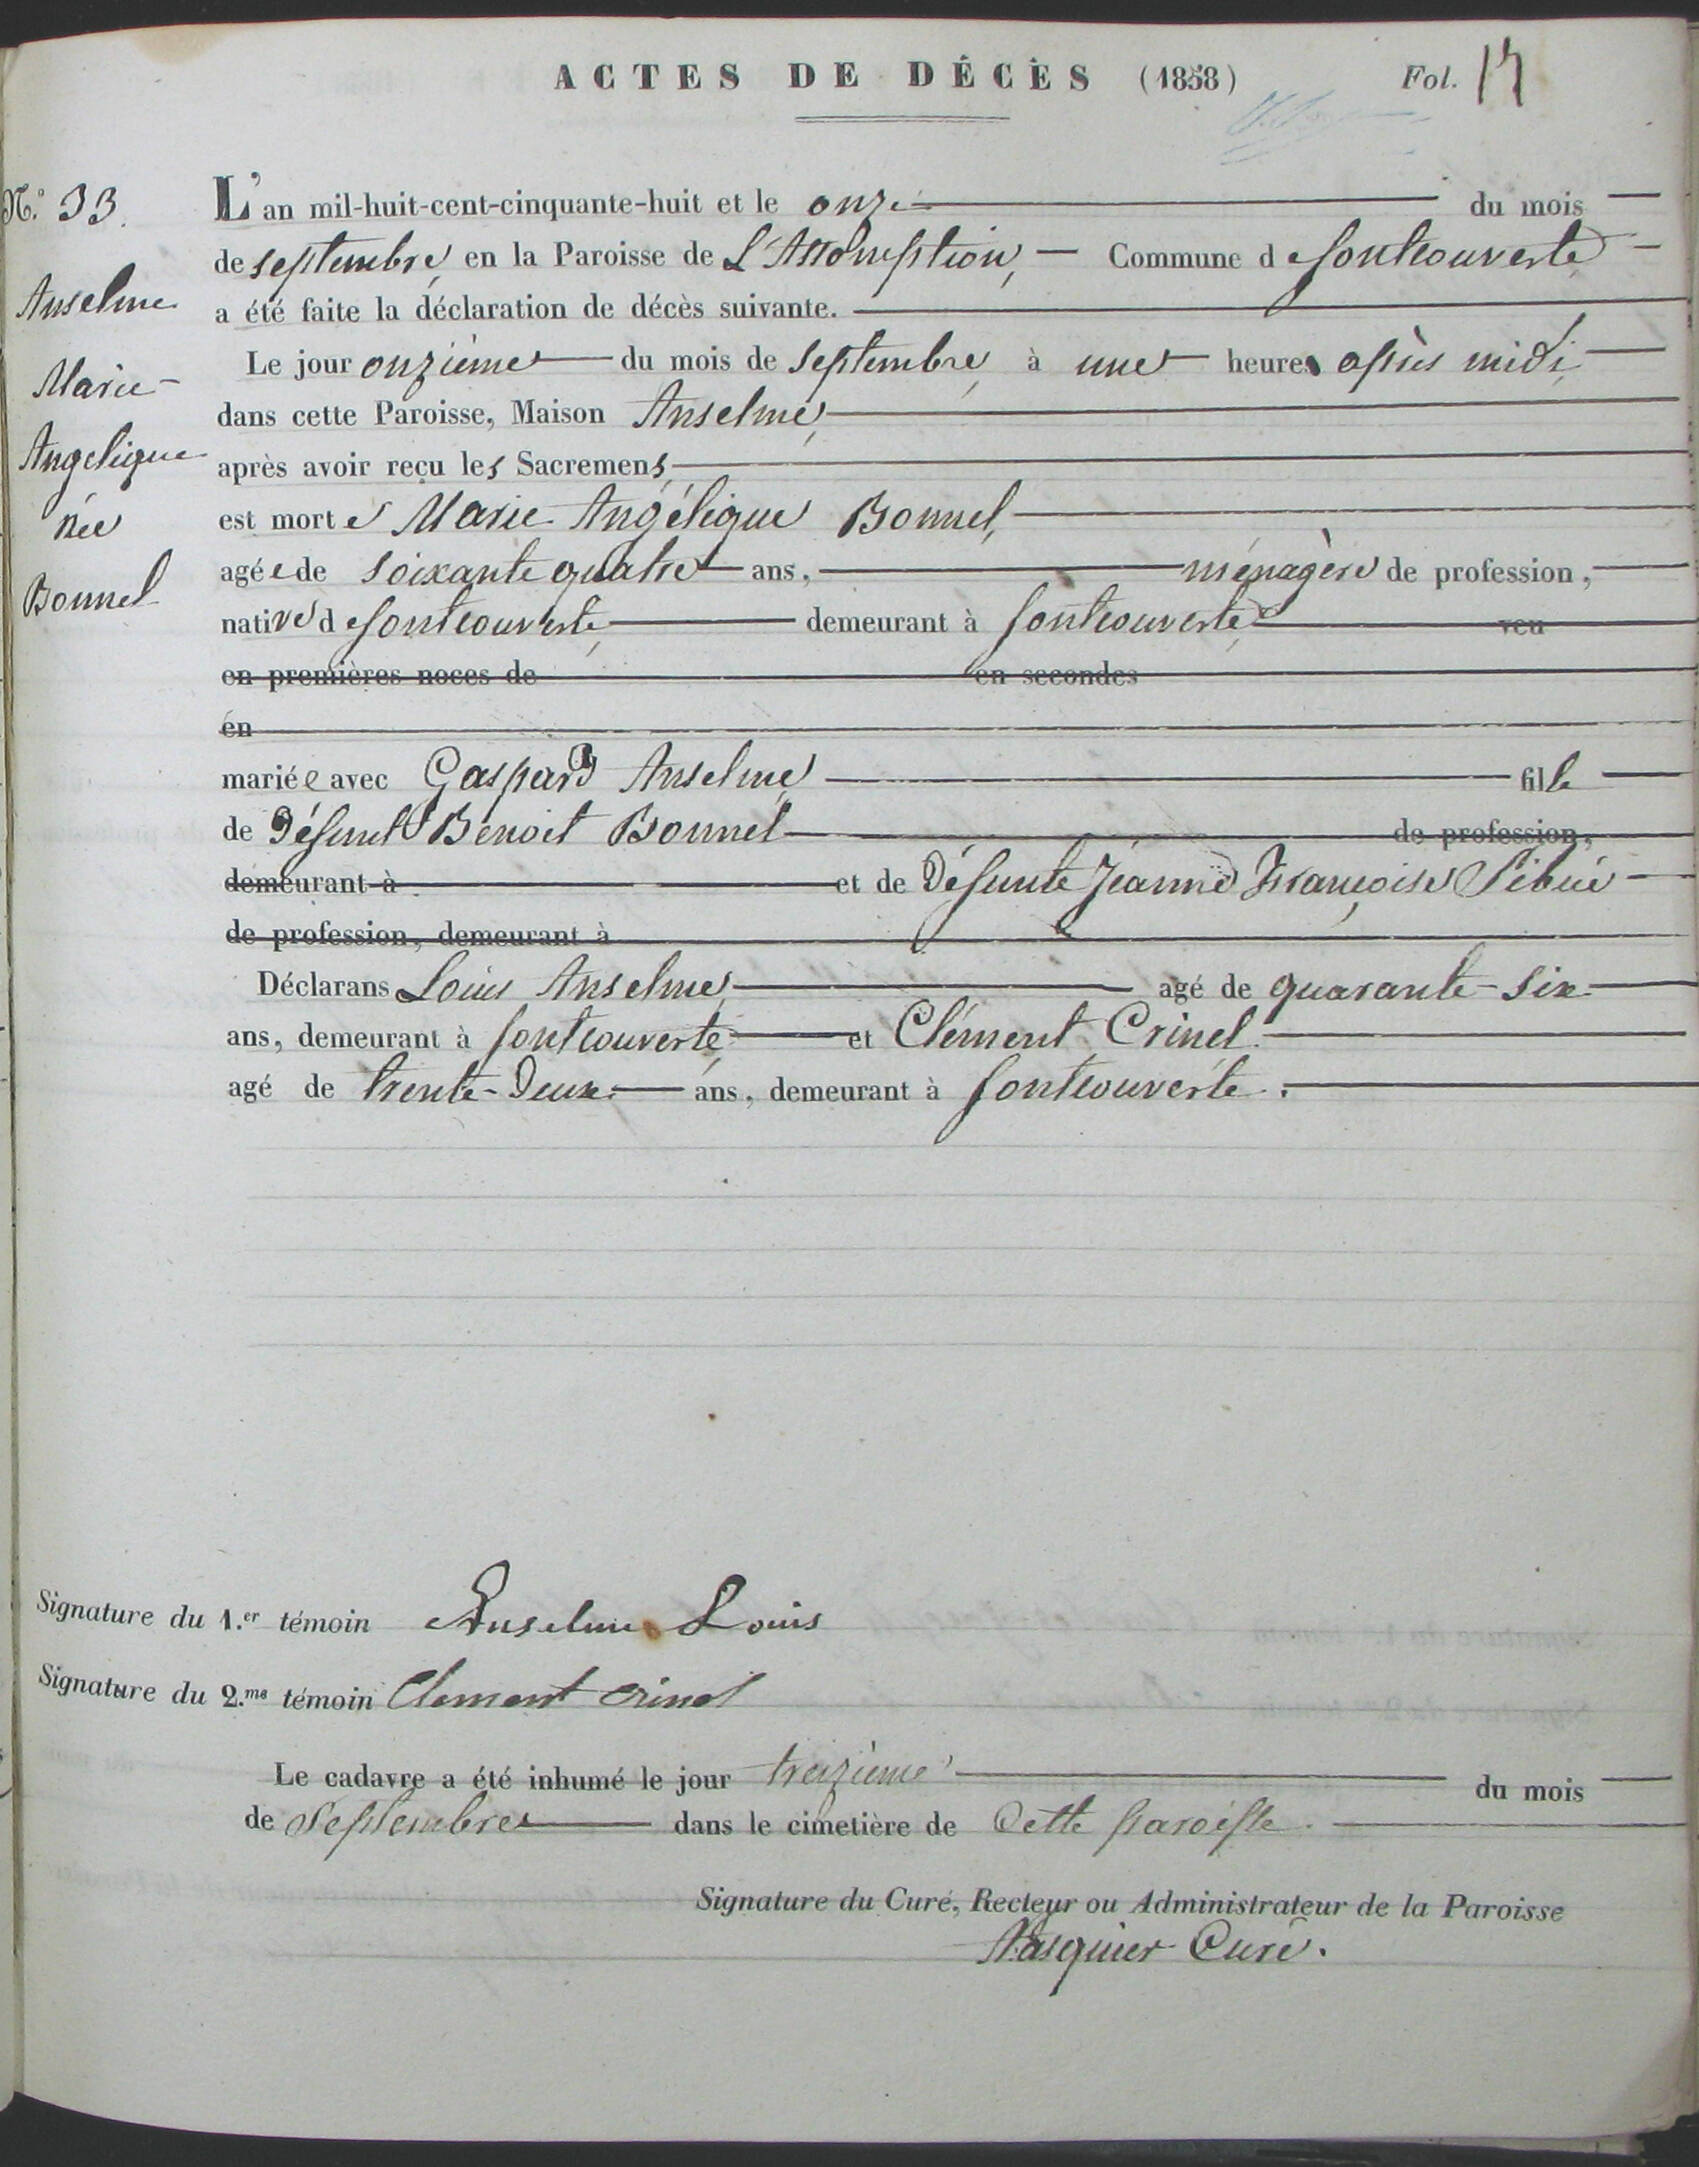 ACTES DE DÉCÈS (1858) Fol. 17
N.º 33.
L'an mil-huit-cent-cinquante-huit et le onze du mois
de septembre, en la Paroisse de L'Assomption, Commune de fontcouverte
a été faite la déclaration de décès suivante.
Anselme
Marie-
Angelique
née
Bonnel
Le jour onzième du mois de septembre, à une heure après midi,
dans cette Paroisse, Maison Anselme,
après avoir reçu les Sacremens,
est morte Marie Angélique Bonnel,
agée de soixante quatre ans, ménagère de profession,
native de fontcouverte, demeurant à fontcouverte, veu
en premières noces de en secondes
en
mariée avec Gaspard Anselme, fille
de Défunt Benoit Bonnel de profession,
demeurant à et de Défunte Jeanne Françoise Sibué
de profession, demeurant à
Déclarans Louis Anselme, agé de quarante-six
ans, demeurant à fontcouverte, et Clément Crinel.
agé de trente-Deux ans, demeurant à fontcouverte.
Signature du 1.er témoin Anselme Louis
Signature du 2.me témoin Clement crinel
Le cadavre a été inhumé le jour treizième du mois
de Septembre dans le cimetière de Cette paroisse.
Signature du Curé, Recteur ou Administrateur de la Paroisse
Pasquier Curé.